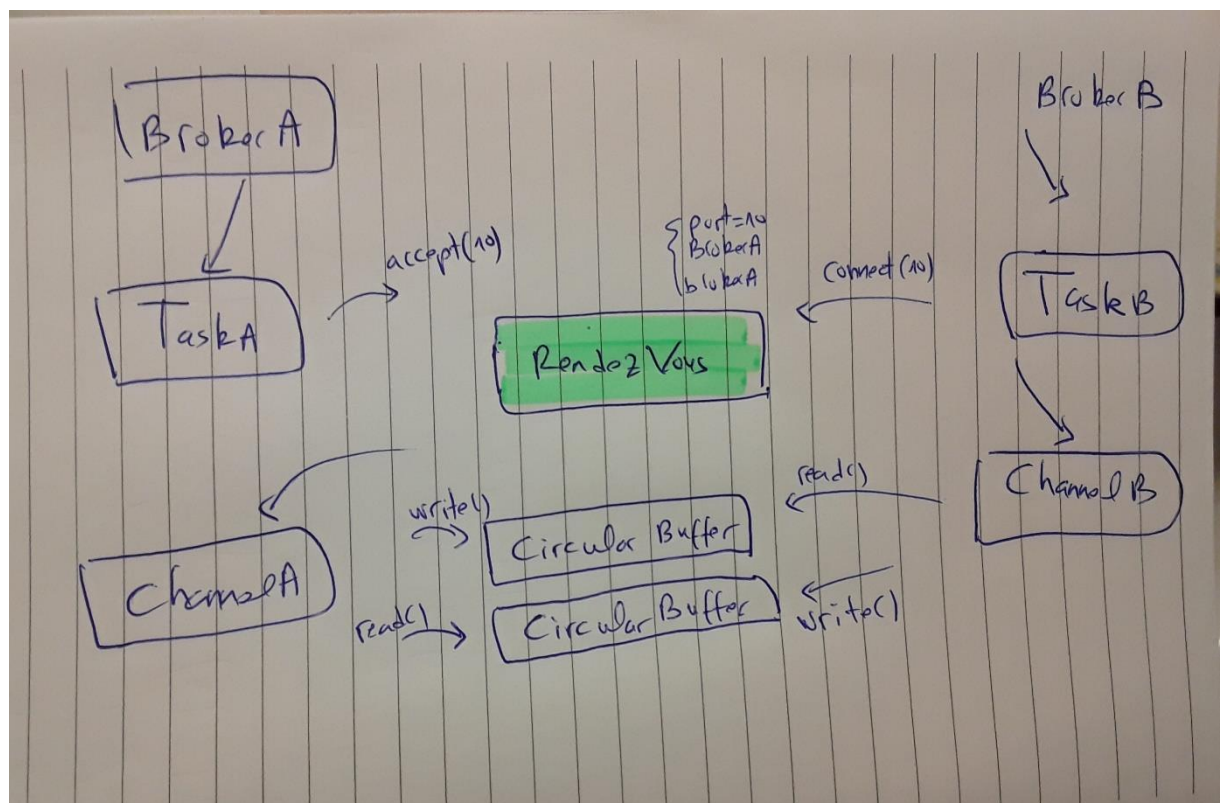 Broker A
Broker B
Task A
accept(10)
port=10
BrokerA
brokerA
Connect(10)
Task B
Rendez Vous
Channel A
write()
Circular Buffer
read()
Channel B
read()
Circular Buffer
write()